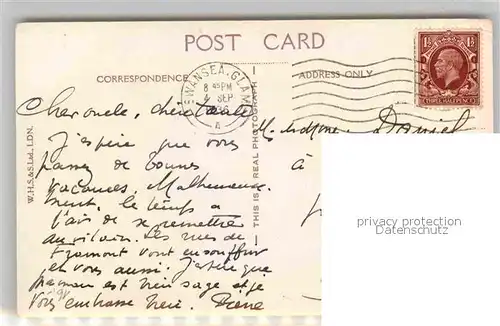 POST CARD
CORRESPONDENCE
ADDRESS ONLY
SWANSEA. GLAM
8 45 PM
4 SEP
1936
A
1½ 1½
THREE HALFPENCE
W.H.S.&S.Ltd., LDN.
THIS IS A REAL PHOTOGRAPH
Cher oncle, chère tante
J'espère que vous
passez de bonnes
vacances. Malheureuse-
ment, le temps a
l'air de se remettre
au vilain. Les rues de
vont en souffrir
et vous aussi. J'espère que
maman est très sage et je
vous embrasse
M. et Mme. Daniel
à
privacy protection
Datenschutz